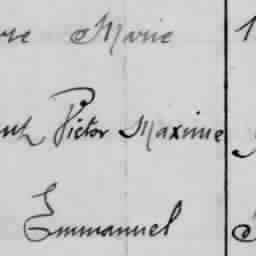 Marie
Victor Maxime
Emmanuel